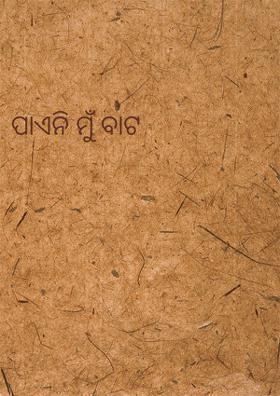 ପାଏନି ମୁଁ ବାଟ